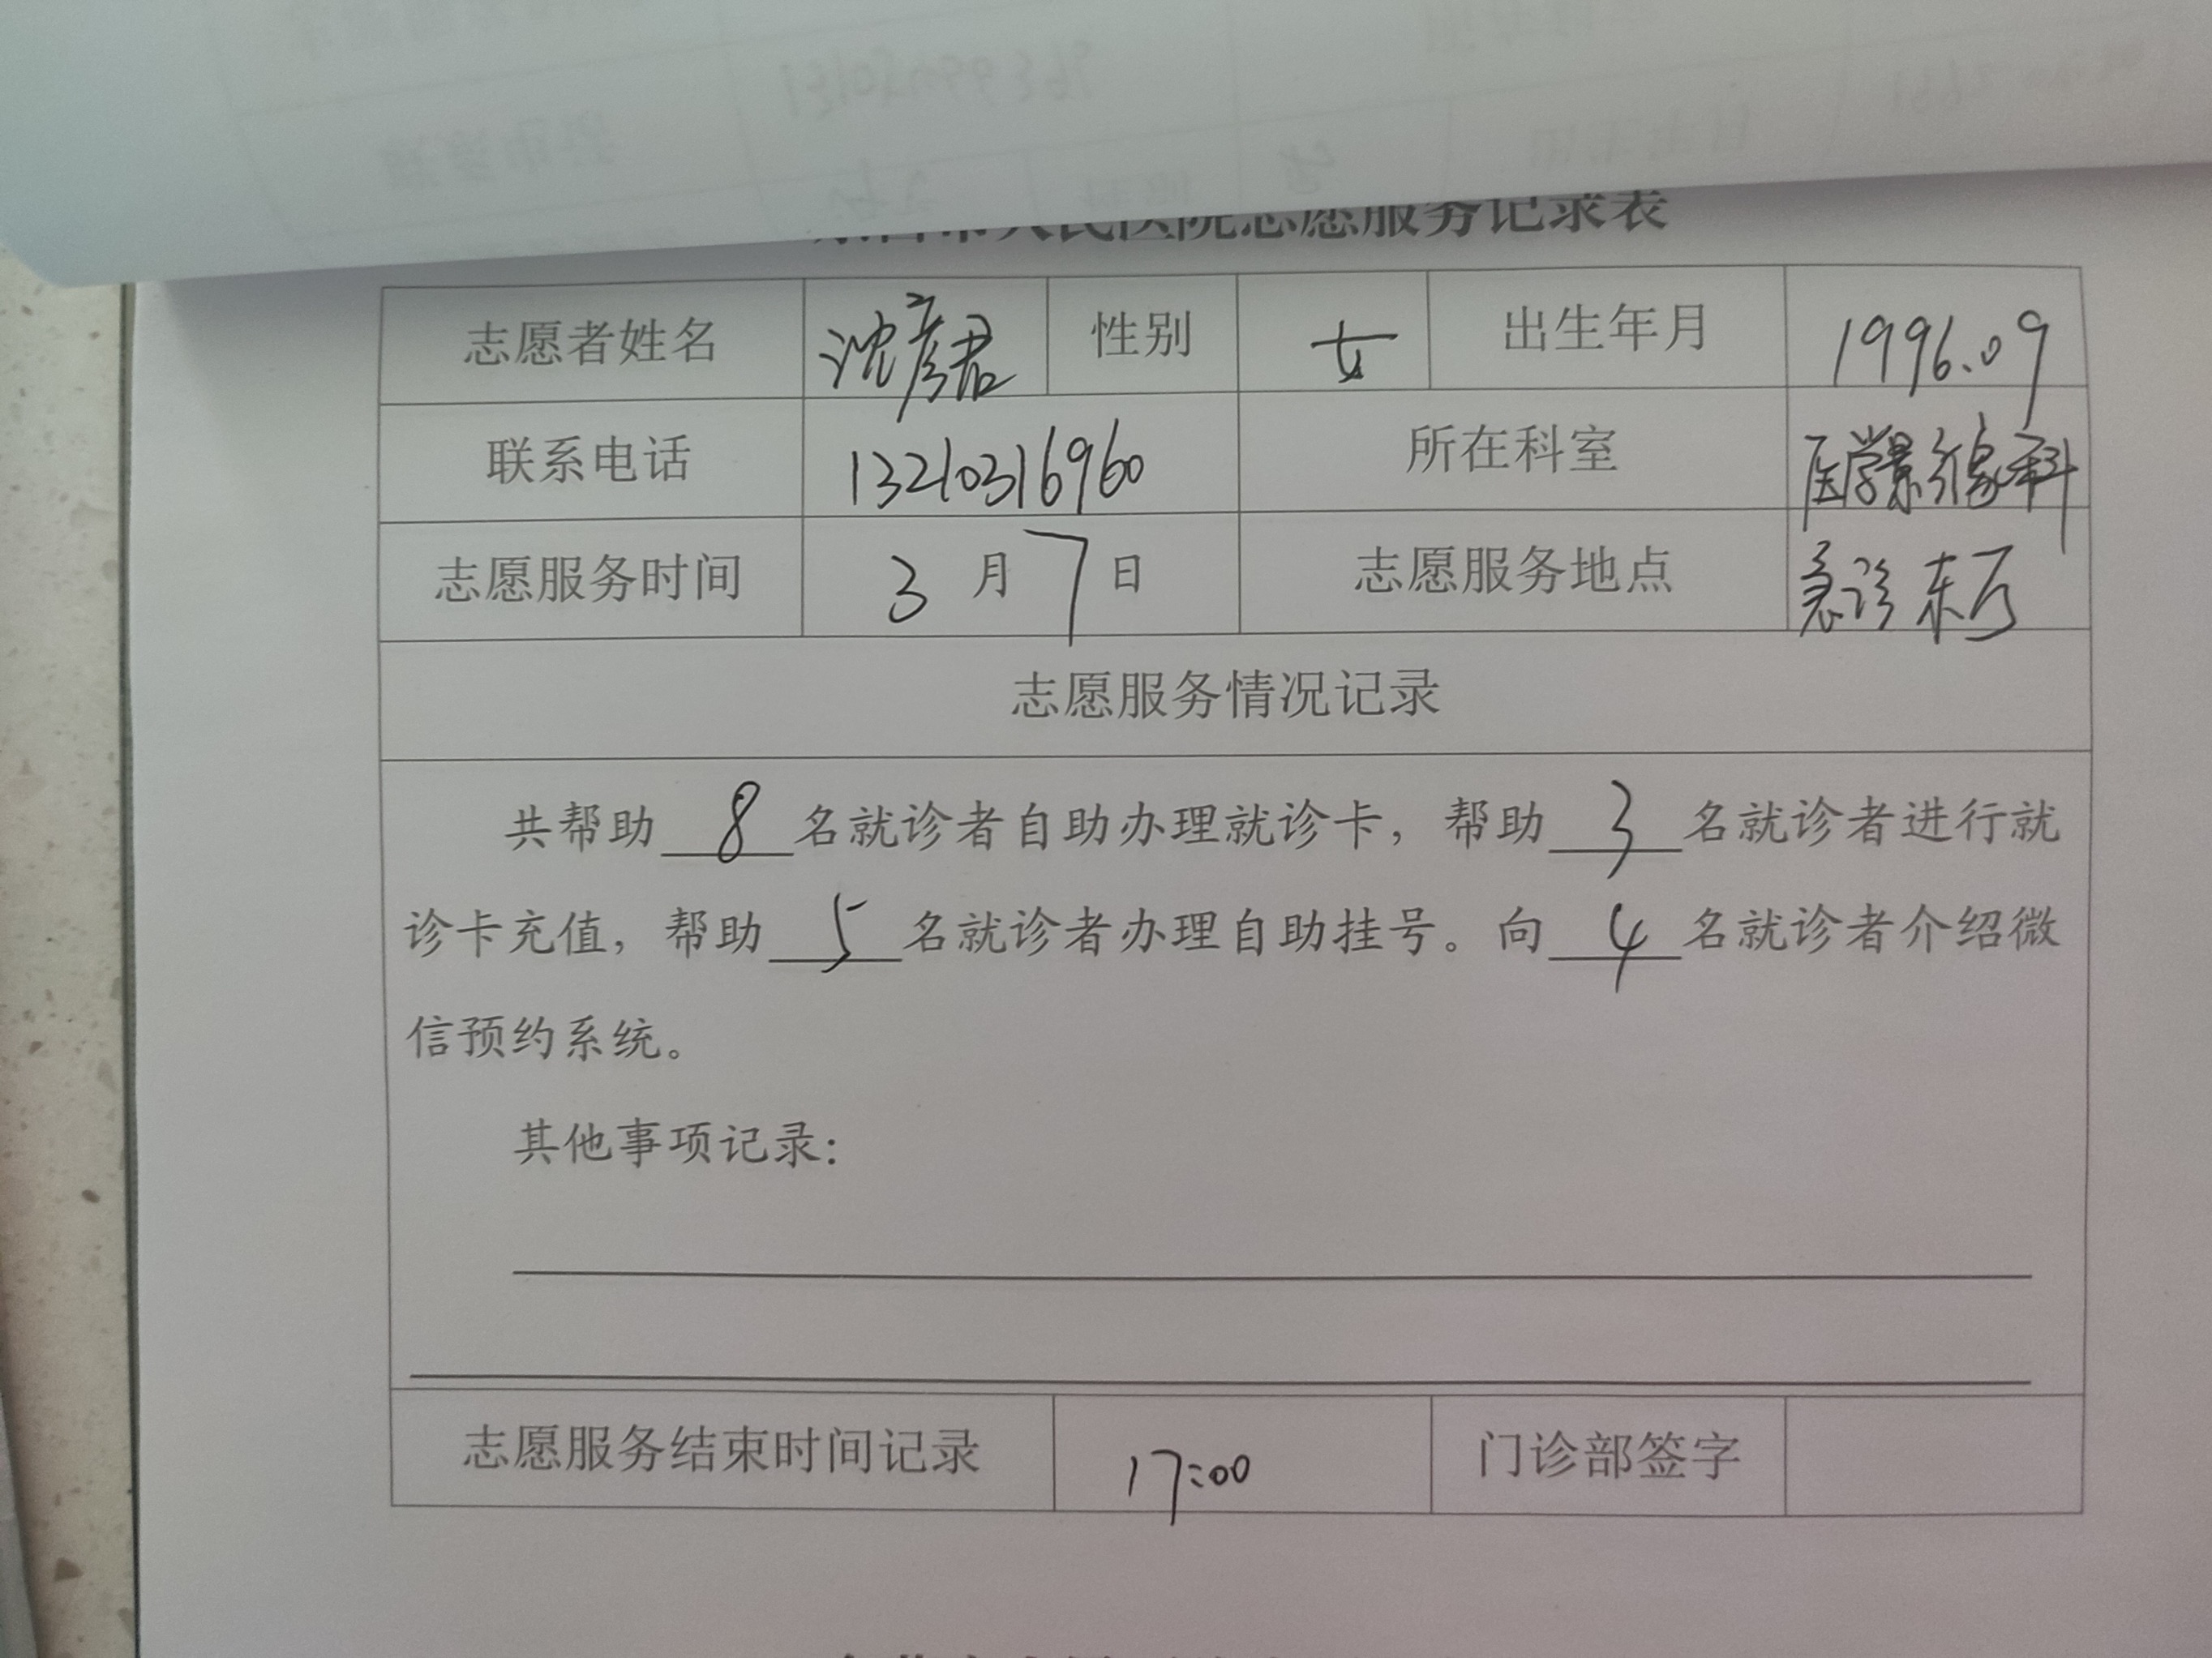 人民医院志愿服务记录表
志愿者姓名 沈彦君 性别 女 出生年月 1996.09
联系电话 13210316960 所在科室 医学影像科
志愿服务时间 3月7日 志愿服务地点 急诊东厅
志愿服务情况记录
共帮助8名就诊者自助办理就诊卡，帮助3名就诊者进行就
诊卡充值，帮助5名就诊者办理自助挂号。向4名就诊者介绍微
信预约系统。
其他事项记录：
志愿服务结束时间记录 17:00 门诊部签字